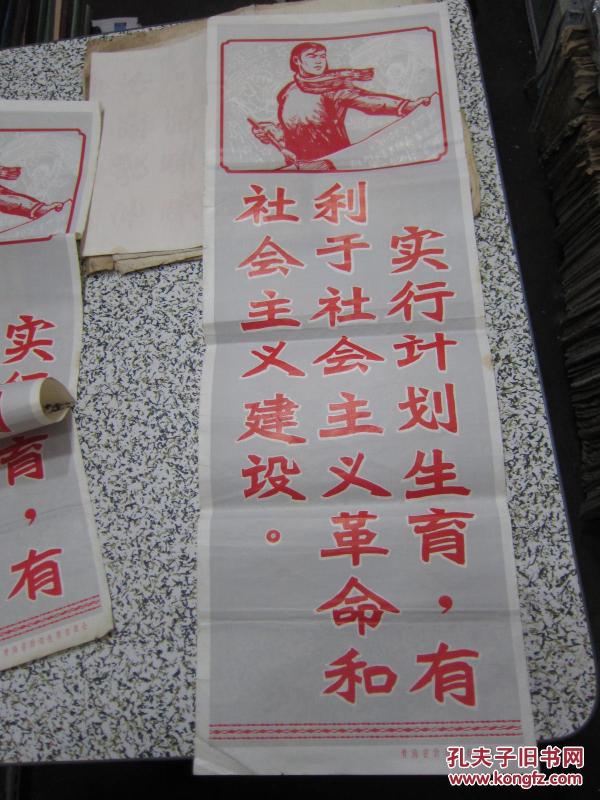 实行计划生育，有
利于社会主义革命和
社会主义建设。
实行
育，有
孔夫子旧书网
www.kongfz.com